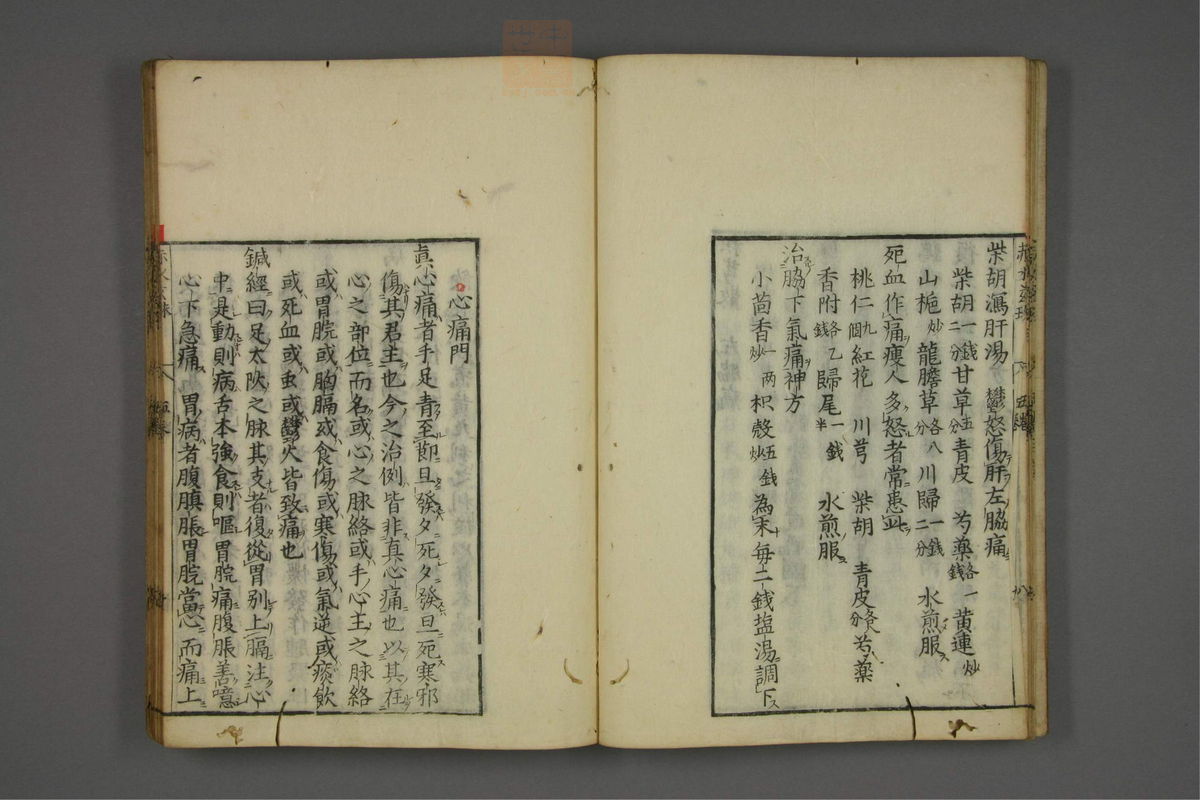 柴胡瀉肝湯 鬱怒傷肝左脇痛
柴胡一錢二分甘草五分青皮 芍藥各一錢 黄連炒
山梔炒 龍膽草各八分 川歸一錢二分 水煎服
死血作痛瘦人多怒者常患此
桃仁九個紅花 川芎 柴胡 青皮各八分 芍藥
香附各乙錢 歸尾一錢半 水煎服
治脇下氣痛神方
小茴香炒一兩 枳殻炒五錢 為末毎二錢塩湯調下
心痛門
眞心痛者手足青至節旦發夕死夕發旦死寒邪
傷其君主也今之治例皆非真心痛也以其在
心之部位而名或心之脉絡或手心主之脉絡
或胃脘或胸膈或食傷或寒傷或氣逆或痰飲
或死血或虫或鬱火皆致痛也
鍼經曰足太陰之脉其支者復從胃别上膈注心
中是動則病舌本強食則嘔胃脘痛腹脹善噫
心下急痛 胃病者腹䐜脹胃脘當心而痛上